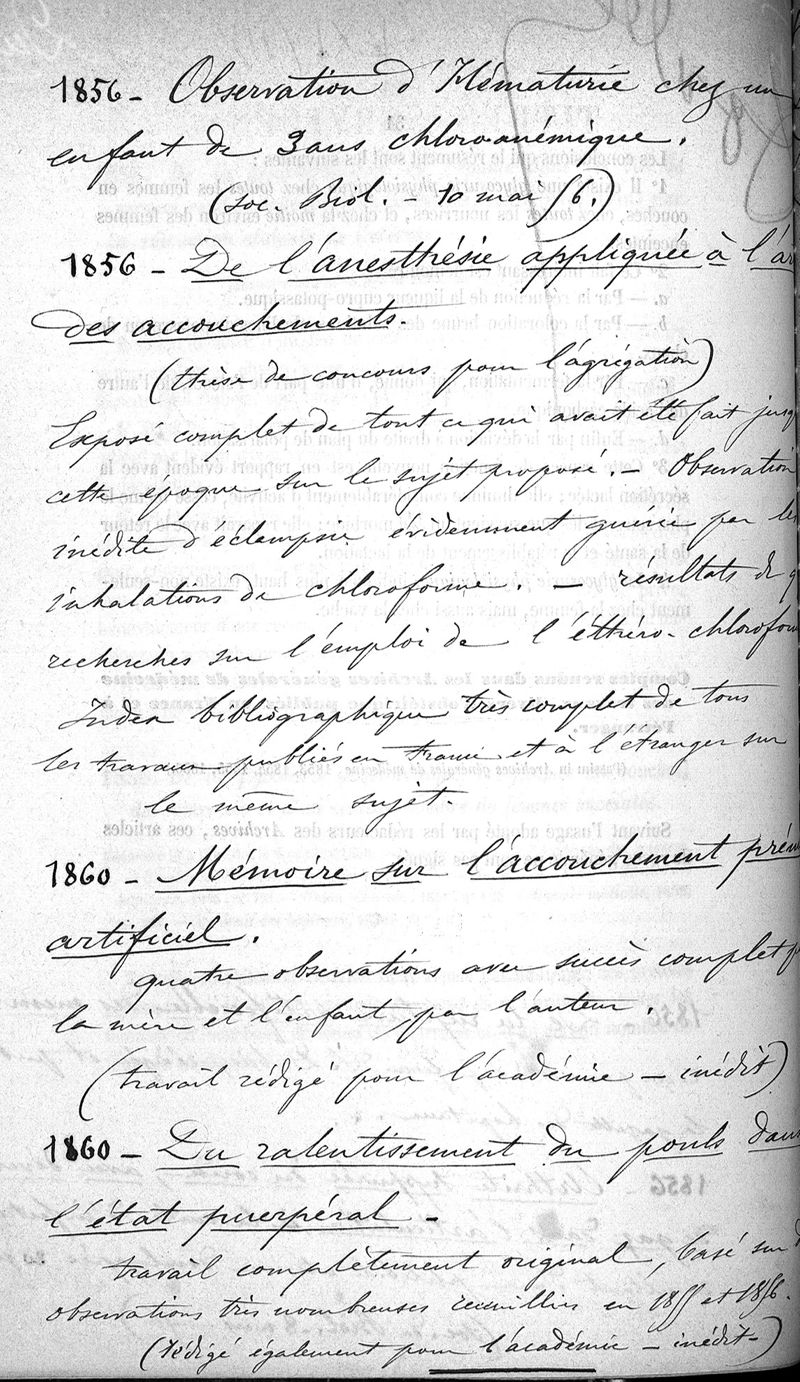 1856 - Observation d'Hématurie chez un
enfant de 3 ans chloroanémique.
(Soc. Biol. - 10 mai 56.)
1856 - De l'anesthésie appliquée à l'ar
des accouchements.
(thèse de concours pour l'agrégation)
Exposé complet de tout ce qui avait été fait jusq
cette époque sur le sujet proposé. - Observation
inédite d'eclampsie évidemment guérie par les
inhalations de chloroforme. - résultats de q
recherches sur l'emploi de l'éthéro-chlorofor
Index bibliographique très complet de tous
les travaux publiés en France et à l'étranger sur
le même sujet.
1860 - Mémoire sur l'accouchement prém
artificiel.
quatre observations avec succès complet p
la mère et l'enfant, par l'auteur.
(travail rédigé pour l'académie - inédit)
1860 - Du ralentissement du pouls dans
l'état puerpéral -
travail complètement original, basé sur d
observations très nombreuses recueillies en 1855 et 1856.
(rédigé également pour l'académie - inédit-)